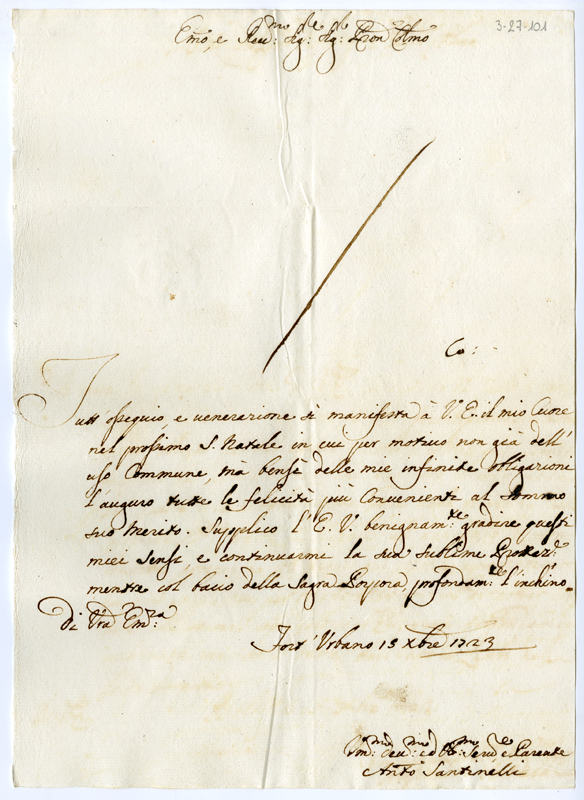 3-27-101
Emo, e Reu:mo Sig:re Sig:re Pron Colmo
Co:
Tutt' ossequio, e uenerazione si manifesta à V. E. il mio Cuore
nel prossimo S. Natale in cui per motiuo non già dell'
uso Commune, mà bensè delle mie infinite obligazioni
l'auguro tutte le felicità più conuenienti al sommo
suo merito. Supplico l'E. V. benignam:te gradire questi
miei sensi, e continuarmi la sua sublime Protez:ne
mentre col bacio della Sagra Porpora, profondam:te l'inchino.
Di Vra Em:za
Fort' Urbano 15 Xbre 1723
Um:mo Deu:mo ed Obl:mo Seru:e e Parente
Anto Santinelli